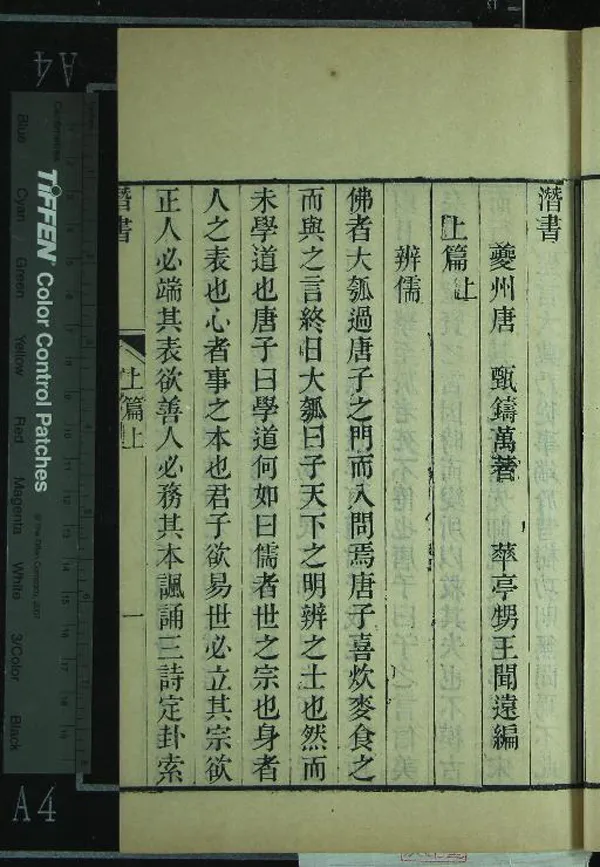 潛書
夔州唐 甄鑄萬著 華亭甥王聞遠編
上篇上
辨儒
佛者大瓠過唐子之門而入問焉唐子喜炊麥食之
而與之言終日大瓠曰子天下之明辨之士也然而
未學道也唐子曰學道何如曰儒者世之宗也身者
人之表也心者事之本也君子欲易世必立其宗欲
正人必端其表欲善人必務其本諷誦三詩定卦索
潛書
上篇上
一
A4
TIFFEN Color Control Patches
© The Tiffen Company, 2007
Blue
Cyan
Green
Yellow
Red
Magenta
White
3/Color
Black
A4